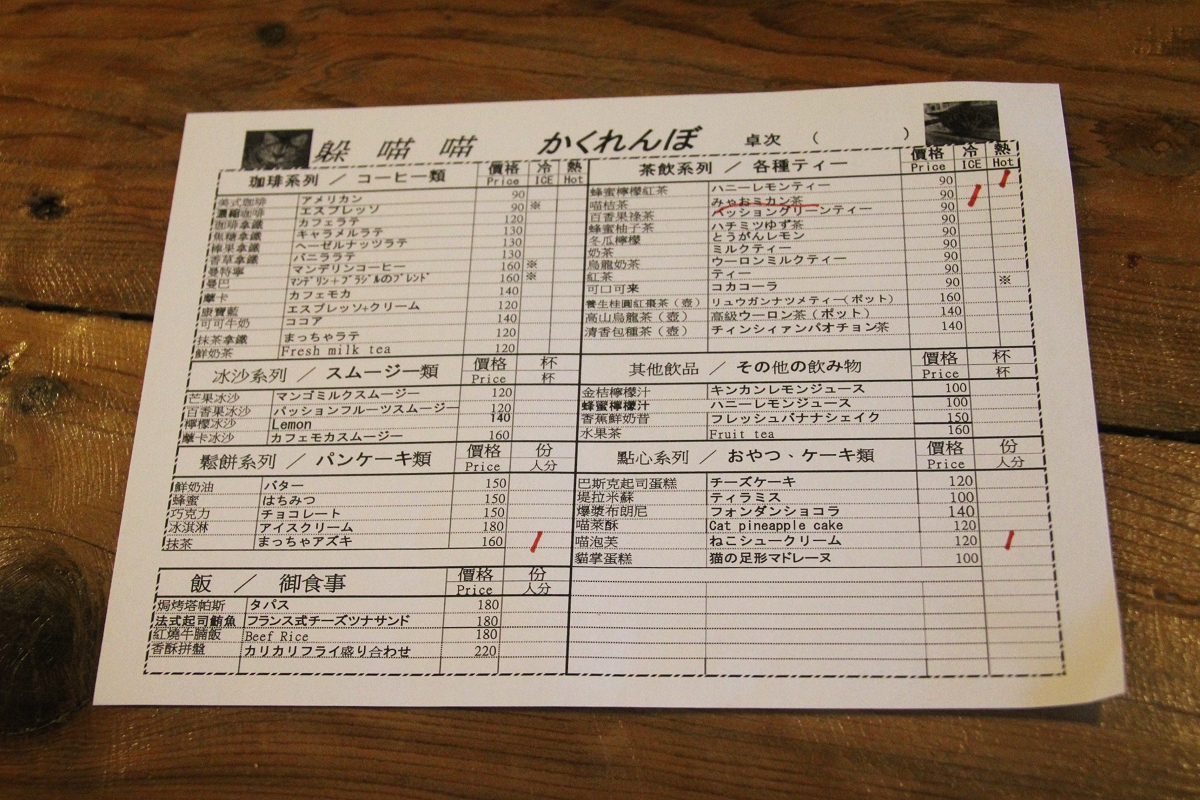 躲 喵 喵 かくれんぼ 卓次 ( )
珈琲系列 / コーヒー類 價格 Price 冷 ICE 熱 Hot
美式珈琲 アメリカン 90
濃縮咖啡 エスプレッソ 90 ※
珈琲拿鐵 カフェラテ 120
焦糖拿鐵 キャラメルラテ 130
榛果拿鐵 ヘーゼルナッツラテ 130
香草拿鐵 バニララテ 130
曼特寧 マンデリンコーヒー 160 ※
曼巴 マンデリン+ブラジルのブレンド 160 ※
摩卡 カフェモカ 140
康寶藍 エスプレッソ+クリーム 120
可可牛奶 ココア 140
抹茶拿鐵 まっちゃラテ 120
鮮奶茶 Fresh milk tea 120
冰沙系列 / スムージー類 價格 Price 杯 杯
芒果冰沙 マンゴミルクスムージー 120
百香果冰沙 パッションフルーツスムージー 120
檸檬冰沙 Lemon 140
摩卡冰沙 カフェモカスムージー 160
鬆餅系列 / パンケーキ類 價格 Price 份 人分
鮮奶油 バター 150
蜂蜜 はちみつ 150
巧克力 チョコレート 150
冰淇淋 アイスクリーム 180
抹茶 まっちゃアズキ 160
飯 / 御食事 價格 Price 份 人分
焗烤塔帕斯 タパス 180
法式起司鮪魚 フランス式チーズツナサンド 180
紅燒牛腩飯 Beef Rice 180
香酥拼盤 カリカリフライ盛り合わせ 220
茶飲系列 / 各種ティー 價格 Price 冷 ICE 熱 Hot
蜂蜜檸檬紅茶 ハニーレモンティー 90
喵桔茶 みゃおミカン茶 90
百香果綠茶 パッショングリーンティー 90
蜂蜜柚子茶 ハチミツゆず茶 90
冬瓜檸檬 とうがんレモン 90
奶茶 ミルクティー 90
烏龍奶茶 ウーロンミルクティー 90
紅茶 ティー 90
可口可来 コカコーラ 90 ※
養生桂圓紅棗茶(壺) リュウガンナツメティー(ポット) 160
高山烏龍茶(壺) 高級ウーロン茶(ポット) 140
清香包種茶(壺) チィンシィァンパオチョン茶 140
其他飲品 / その他の飲み物 價格 Price 杯 杯
金桔檸檬汁 キンカンレモンジュース 100
蜂蜜檸檬汁 ハニーレモンジュース 100
香蕉鮮奶昔 フレッシュバナナシェイク 150
水果茶 Fruit tea 160
點心系列 / おやつ、ケーキ類 價格 Price 份 人分
巴斯克起司蛋糕 チーズケーキ 120
堤拉米蘇 ティラミス 100
爆漿布朗尼 フォンダンショコラ 140
喵萊酥 Cat pineapple cake 120
喵泡芙 ねこシュークリーム 120
貓掌蛋糕 猫の足形マドレーヌ 100